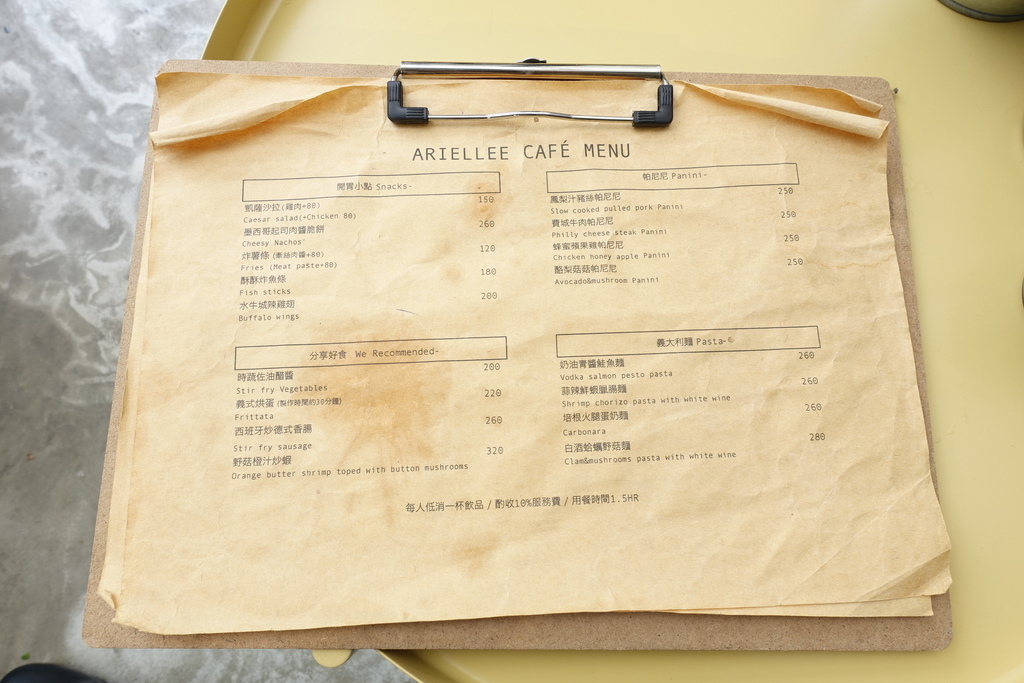 ARIELLEE CAFÉ MENU
開胃小點 Snacks-
凱薩沙拉(雞肉+80) 150
Caesar salad(+Chicken 80)
墨西哥起司肉醬脆餅 260
Cheesy Nachos'
炸薯條 (素絲肉醬+80) 120
Fries (Meat paste+80)
酥酥炸魚條 180
Fish sticks
水牛城辣雞翅 200
Buffalo wings
帕尼尼 Panini-
鳳梨汁豬絲帕尼尼 250
Slow cooked pulled pork Panini
費城牛肉帕尼尼 250
Philly cheese steak Panini
蜂蜜蘋果雞帕尼尼 250
Chicken honey apple Panini
酪梨菇菇帕尼尼 250
Avocado&mushroom Panini
分享好食 We Recommended-
時蔬佐油醋醬 200
Stir fry Vegetables
義式烘蛋 (製作時間約30分鐘) 220
Frittata
西班牙炒德式香腸 260
Stir fry sausage
野菇橙汁炒蝦 320
Orange butter shrimp toped with button mushrooms
義大利麵 Pasta-
奶油青醬鮭魚麵 260
Vodka salmon pesto pasta
蒜辣鮮蝦臘腸麵 260
Shrimp chorizo pasta with white wine
培根火腿蛋奶麵 260
Carbonara
白酒蛤蠣野菇麵 280
Clam&mushrooms pasta with white wine
每人低消一杯飲品 / 酌收10%服務費 / 用餐時間1.5HR